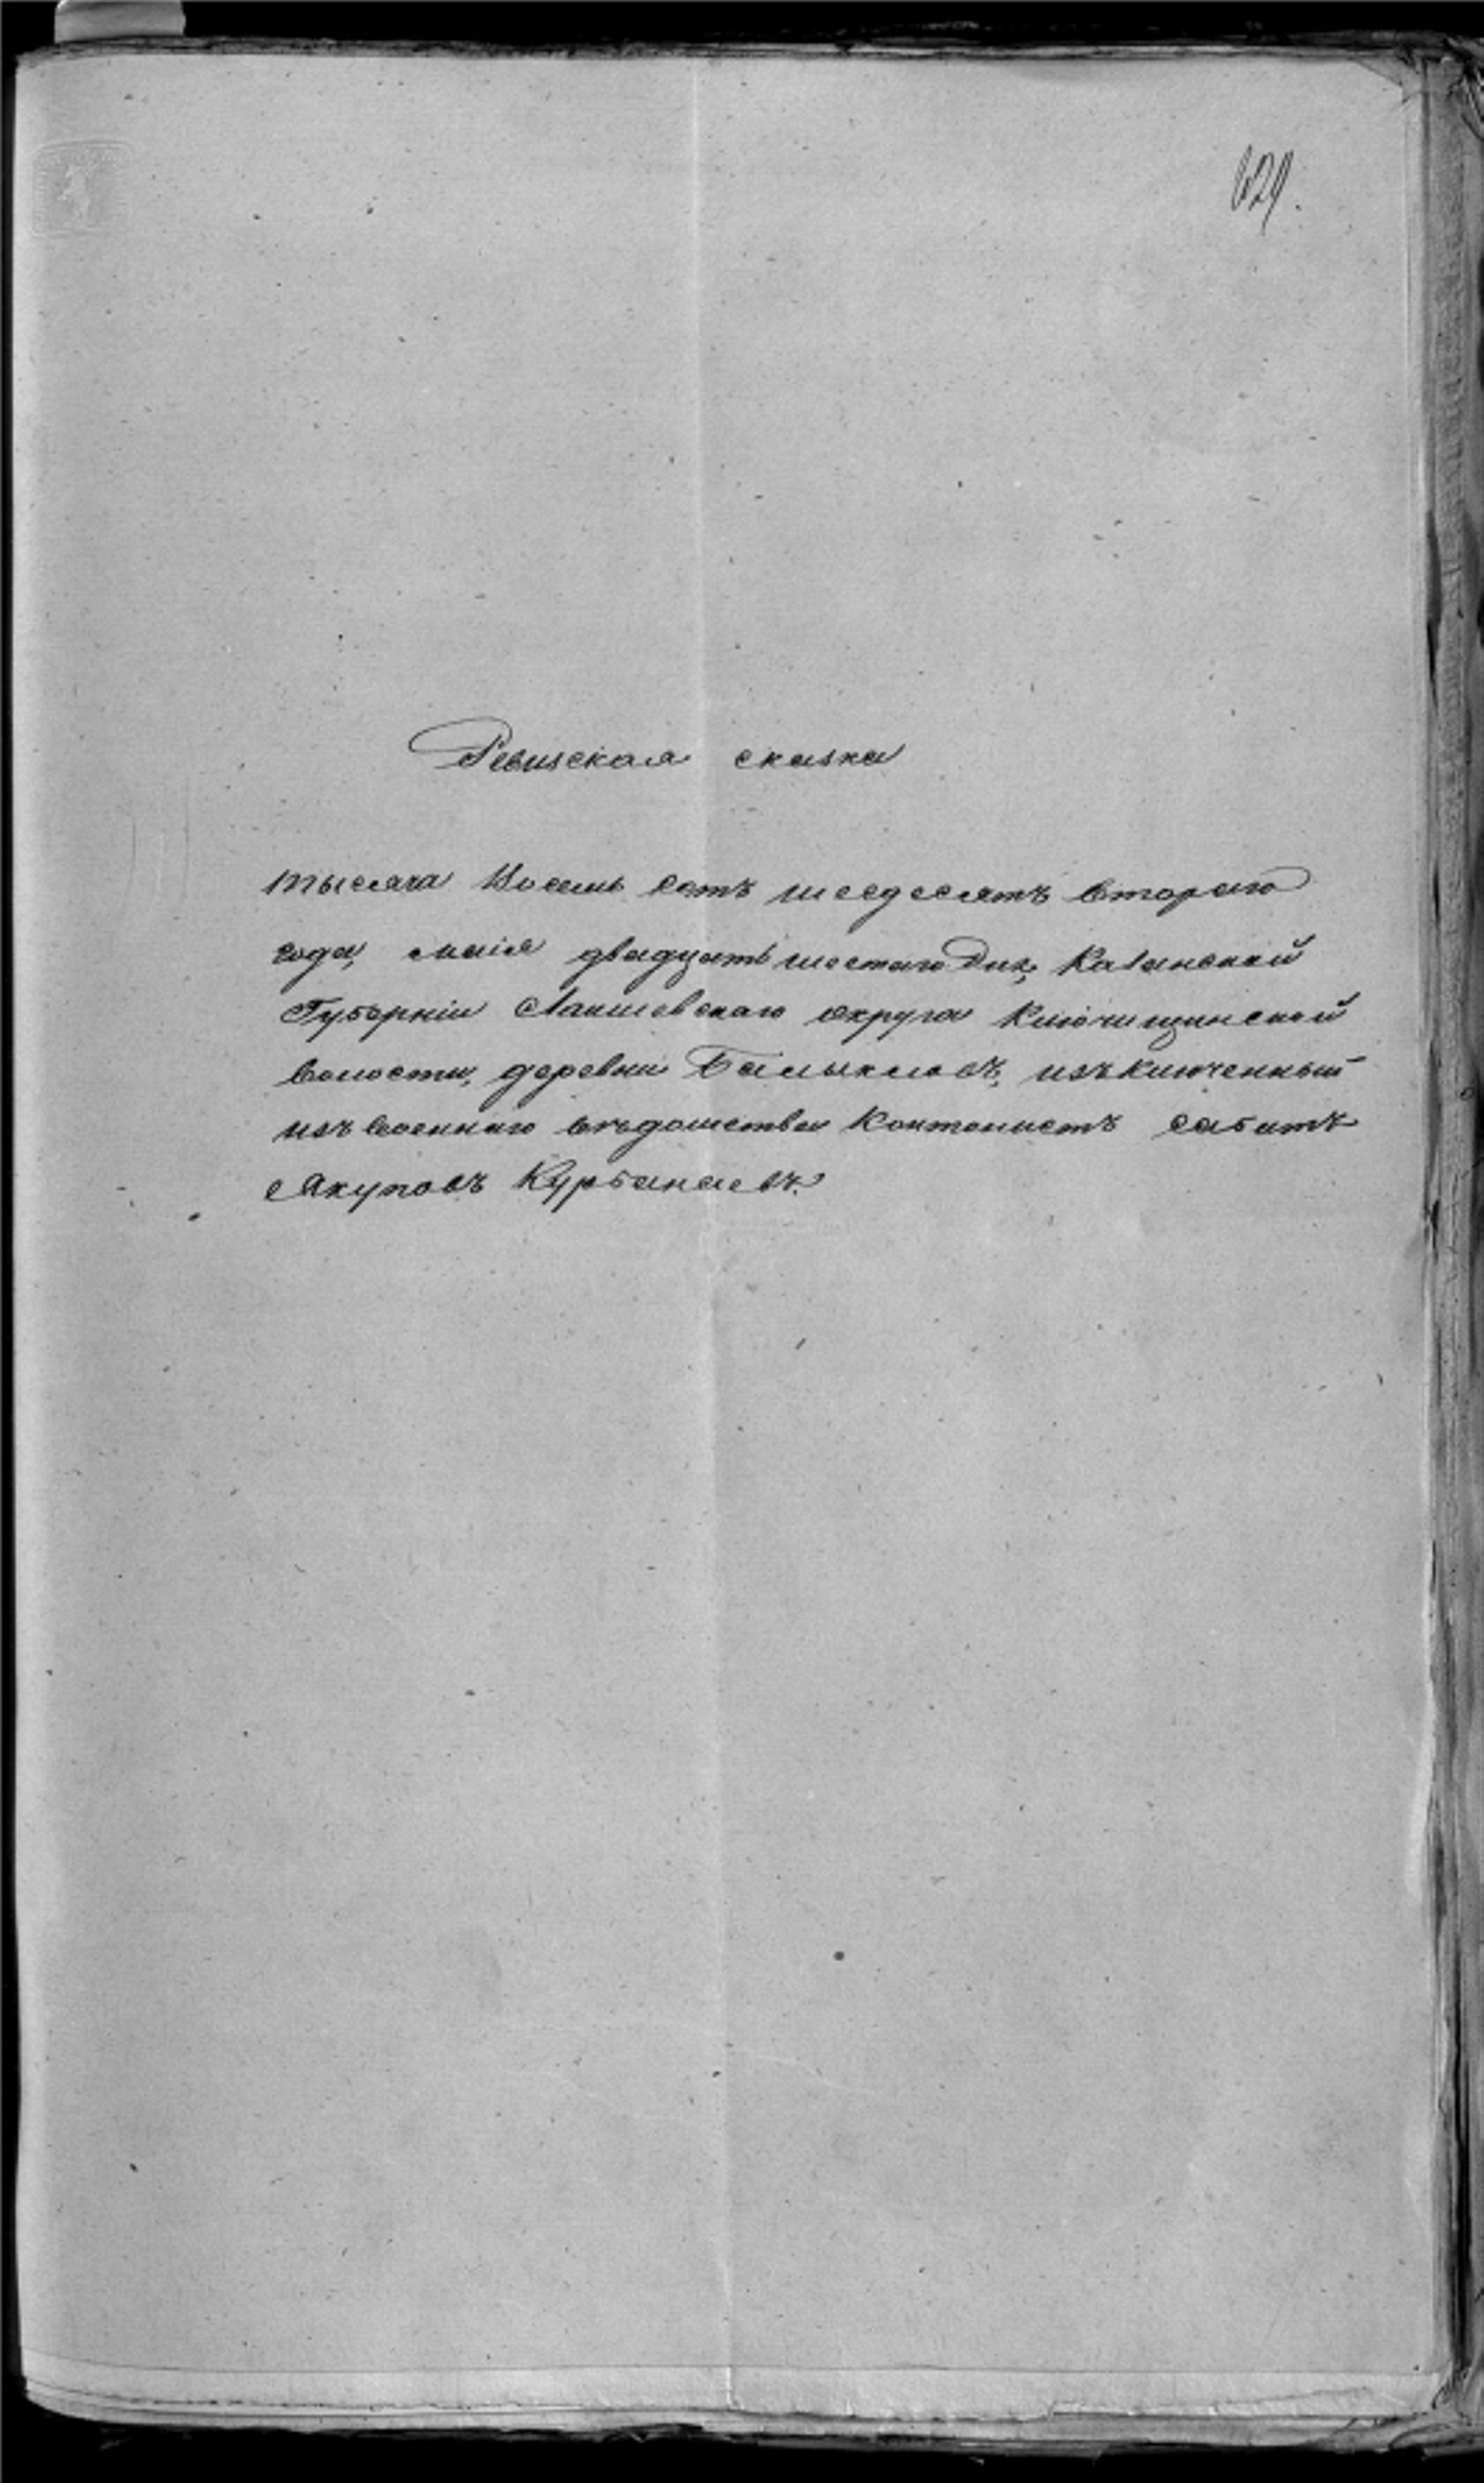 629.
Ревизская сказка
тысяча восемь сотъ шесдесятъ втораго
года, маія двадцать шестаго дня, Казанской
Губерніи Лаишевскаго округа Ключищинской
волости, деревни Балыклов, изъключенный
изъ военнаго вѣдомства Контонистъ сабитъ
Якуповъ Курбанаевъ.